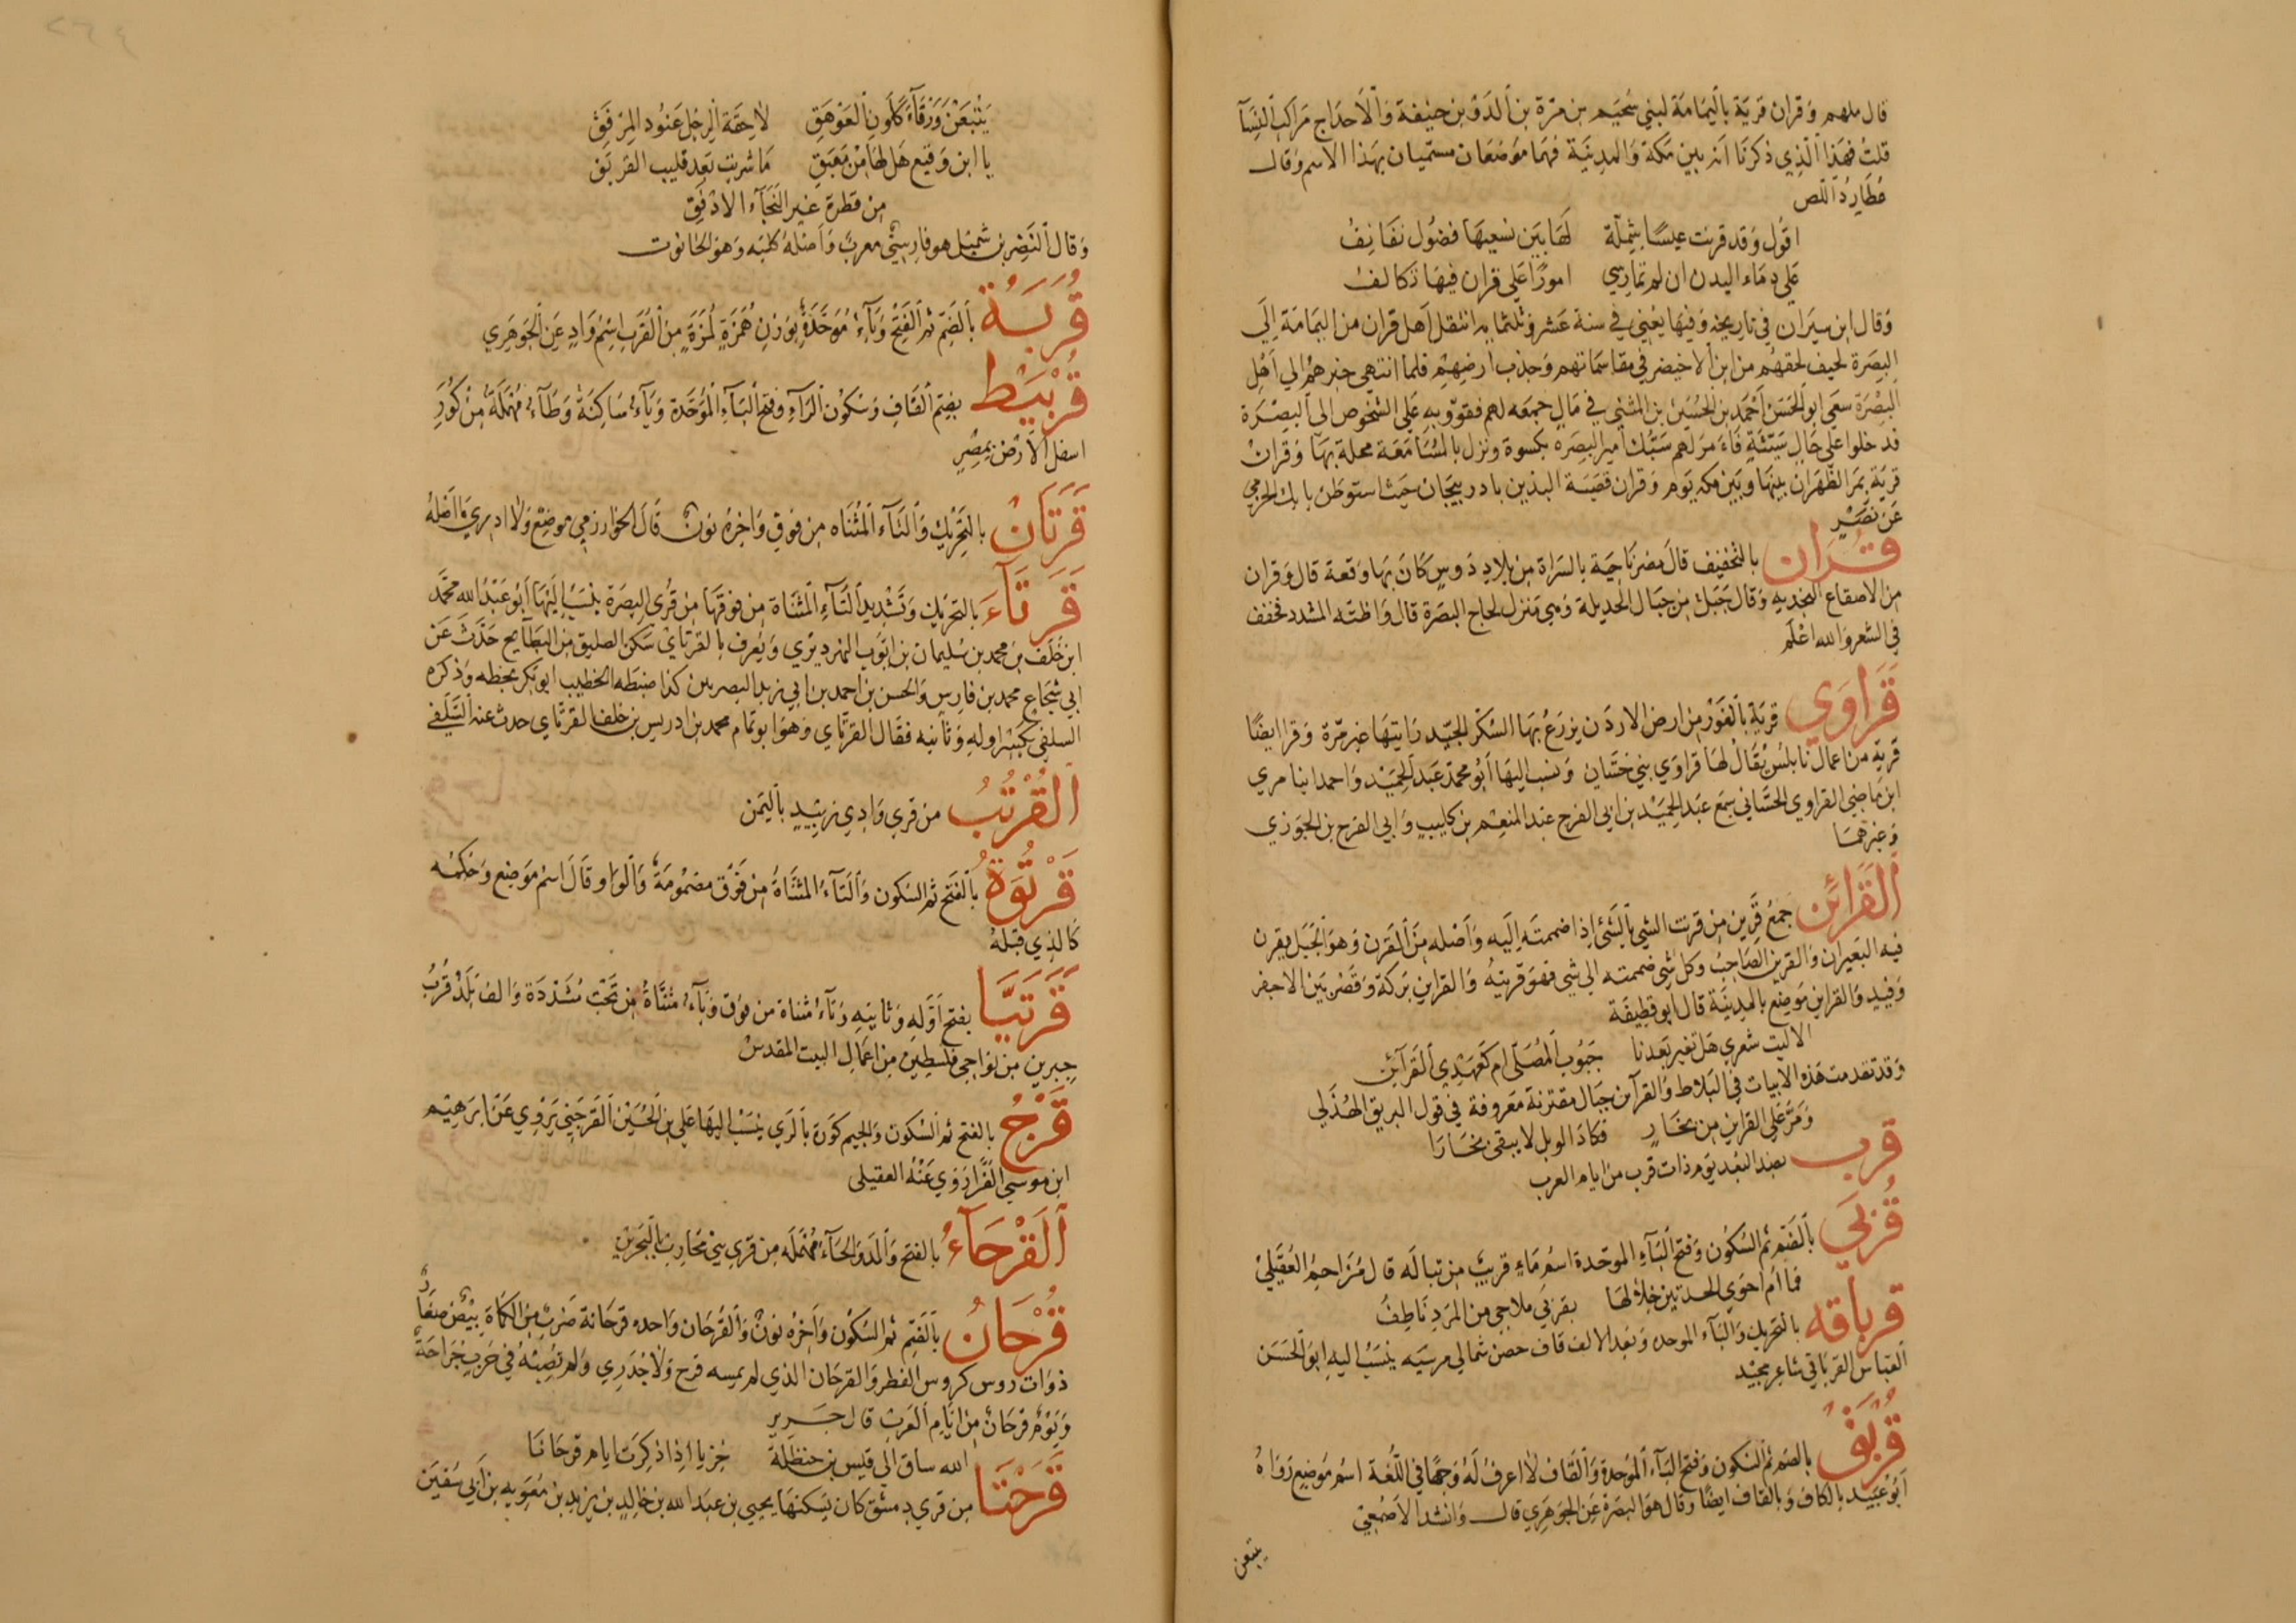 قال ملهم وقران قرية باليمامة لبني سحيم بن مرة بن الدؤل بن حنيفة والاحداج مراكب النسآ
قلت فهذا الذي ذكرنا انه بين مكة والمدينة فهما موضعان مسميان بهذا الاسم وقال
عطارد اللص
اقول وقد قربت عيسا شملة لها بين نسعيها فضول نفانف
علي دماء البدن ان لم تمارسي امورا علي قران فيها تكالف
وقال ابن سيران في تاريخه وفيها يعني في سنة عشر وثلثمايه انتقل اهل قران من اليمامة الي
البصرة لحيف لحقهم من ابن الاخيضر في مقاسماتهم وجذب ارضهم فلما انتهي خبرهم الي اهل
البصرة سعي ابو الحسن احمد بن الحسين بن المثني في مال جمعه لهم فقووا به علي الشخوص الي البصرة
فدخلوا علي حال سيئة فامر لهم سبك امير البصره بكسوة ونزل بالمسامعة محلة بها وقران
قرية بمر الظهران بينها وبين مكه يوم وقران قصبة البذين باذربيجان حيث استوطن بابك الخرمي
عن نصر
قران بالتخفيف قال نصر ناحية بالسراة من بلاد دوس كان بها وقعة قال وقران
من الاصقاع النجديه وقال جبل من جبال الجديلة وهي منزل لحاج البصرة قال واظنه المشدد فخفف
في الشعر والله اعلم
قراوي قرية بالغور من ارض الاردن يزرع بها السكر الجيد رايتها غير مرة وقرا ايضا
قرية من اعمال نابلس يقال لها قراوي بني حسان وينسب اليها ابو محمد عبد الحميد واحمد ابنا مري
ابن ماضي القراوي الحساني سمع عبد الحميد بن ابي الفرج عبد المنعم بن كليب وابي الفرج بن الجوزي
وغيرهما
القرائن جمع قرين من قرنت الشي بالشئ اذا ضممته اليه واصله من القرن وهو الحبل يقرن
فيه البعيران والقرين الصاحب وكل شي ضممته الي شي فهو قرينه والقراين بركة وقصر بين الاجفر
وفيد والقراين موضع بالمدينة قال ابو قطيفة
الا ليت شعري هل تغير بعدنا جبوب المصلي ام كعهدي القرآئن
وقد تقدمت هذه الابيات في البلاط والقرآئن جبال مقترنة معروفة في قول البريق الهذلي
ومر علي القراين من بخار فكاد الوبل لا يبقي بخارا
قرب بضد البعد يوم ذات قرب من ايام العرب
قربي بالضم ثم السكون وفتح البآء الموحدة اسم ماء قريب من تبالة قال مزاحم العقيلي
فما ام احوي الحدتين خلالها بقربي ملاحي من المرد ناطف
قرباقه بالتحريك والبآء الموحده وبعد الالف قاف حصن شمالي مرسيه ينسب اليه ابو الحسن
العباس القرباقي شاعر مجيد
قربق بالضم ثم السكون وفتح البآء الموحدة والقاف لا اعرف له وجها في اللغة اسم موضع رواه
ابو عبيد بالكاف وبالقاف ايضا وقال هو البصرة عن الجوهري قال وانشد الاصمعي
يتبعن
يتبعن ورقآء كلون العوهق لاحقة الرجل عنود المرفق
يا ابن رقيع هل لها من مغبق ما شربت بعد قليب القربق
من قطرة غير النجآء الادفق
وقال النضر بن شميل هو فارسي معرب واصله كلبه وهو الحانوت
قربة بالضم ثم الفتح وبآء موحدة بوزن همزة لمزة من القرب اسم واد عن الجوهري
قربيط بضم القاف وسكون الرآء وفتح البآء الموحدة ويآء ساكنة وطآء مهملة من كور
اسفل الارض بمصر
قرتان بالتحريك والتآء المثناه من فوق واخره نون قال الخوارزمي موضع ولا ادري ما اصله
قرتآء بالتحريك وتشديد التآء المثناة من فوقها من قري البصرة ينسب اليها ابو عبد الله محمد
ابن خلف بن محمد بن سليمان بن ايوب النهرديري ويعرف بالقرتاي سكن الصليق من البطآيح حدث عن
ابي شجاع محمد بن فارس والحسن بن احمد بن ابي زيد البصريين كذا ضبطه الخطيب ابو بكر بخطه وذكره
السلفي بكسر اوله وثانيه فقال القرتاي وهو ابو تمام محمد بن ادريس بن خلف القرتاي حدث عنه السلفي
القرتب من قري وادي زبيد باليمن
قرتوة بالفتح ثم السكون والتآء المثناة من فوق مضمومة والواو قال اسم موضع وحكمه
كالذي قبله
قرتيا بفتح اوله وثانيه وتآء مثناة من فوق ويآء مثناة من تحت مشددة والف بلد قرب
جبرين من نواحي فلسطين من اعمال البيت المقدس
قرج بالفتح ثم السكون والجيم كورة بالري ينسب اليها علي بن الحسين القرجي يروي عن ابرهيم
ابن موسي الفرا روي عنه العقيلي
القرحآء بالفتح والمد والحآء مهمله من قري بني محارب بالبحرين
قرحان بالضم ثم السكون واخره نون والقرحان واحده قرحانة ضرب من الكماة بيض صغار
ذوات روس كروس الفطر والقرحان الذي لم يمسه قرح ولا جدري ولم تصبه في حرب جراحة
ويوم قرحان من ايام العرب قال جرير
الله ساق الي قيس بن حنظلة خزيا اذا ذكرت ايام قرحانا
قرحتا من قري دمشق كان يسكنها يحيي بن عبد الله بن خالد بن يزيد بن معويه بن ابي سفين